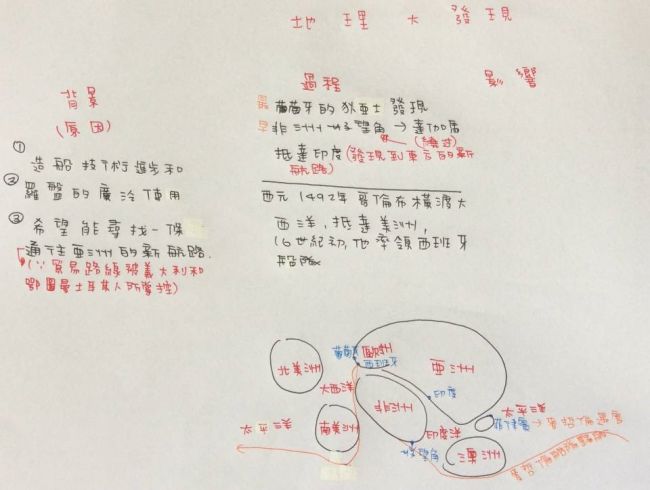 地理大發現
背景
(原因)
① 造船技術進步和
② 羅盤的廣泛使用
③ 希望能尋找一條
通往亞洲的新航路.
(∵貿易路線被義大利和
鄂圖曼土耳其人所掌控)
過程
最 葡萄牙的狄亞士發現
早 非洲好望角→達加馬
(繞過)
抵達印度(發現到東方的新
航路)
西元1492年哥倫布橫渡大
西洋,抵達美洲,
16世紀初,他率領西班牙
船隊
影響
北美洲
葡萄牙
歐洲
西班牙
亞洲
大西洋
非洲
印度
太平洋
南美洲
印度洋
太平洋
菲律賓
好望角
澳洲